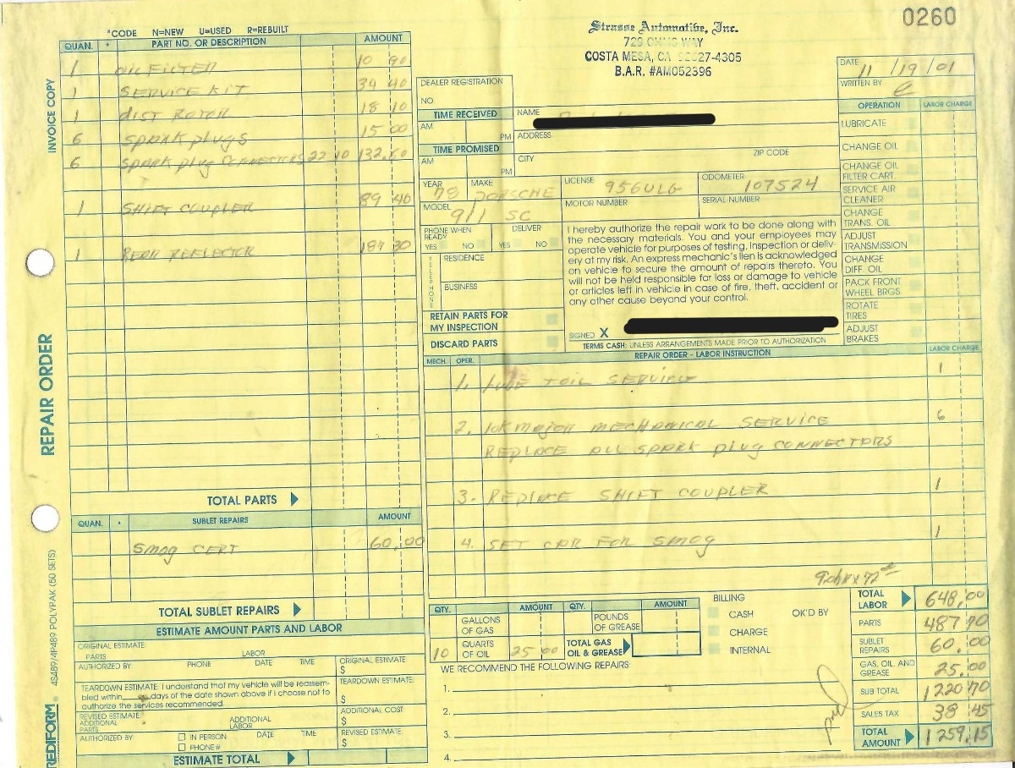 0260
*CODE N=NEW U=USED R=REBUILT
QUAN. * PART NO. OR DESCRIPTION AMOUNT
1 OIL FILTER 10 90
1 SERVICE KIT 34 40
1 DIST ROTOR 18 10
6 SPARK PLUGS 15 00
6 SPARK PLUG CONNECTORS 22 10 132.60
1 SHIFT COUPLER 89 40
1 REAR REFLECTOR
TOTAL PARTS
QUAN. * SUBLET REPAIRS AMOUNT
SMOG CERT 60,00
TOTAL SUBLET REPAIRS
ESTIMATE AMOUNT PARTS AND LABOR
ORIGINAL ESTIMATE
PARTS LABOR
AUTHORIZED BY PHONE DATE TIME ORIGINAL ESTIMATE
$
TEARDOWN ESTIMATE: I understand that my vehicle will be reassem-
bled within days of the date shown above if I choose not to
authorize the services recommended.
TEARDOWN ESTIMATE
$
REVISED ESTIMATE
ADDITIONAL PARTS ADDITIONAL LABOR
ADDITIONAL COST
$
AUTHORIZED BY IN PERSON DATE TIME
PHONE#
REVISED ESTIMATE
$
ESTIMATE TOTAL
INVOICE COPY
REPAIR ORDER
REDIFORM ® 4S489/4P489 POLYPAK (50 SETS)
Strasse Automotive, Inc.
729 OHMS WAY
COSTA MESA, CA 92627-4305
B.A.R. #AM052396
DEALER REGISTRATION
NO.
TIME RECEIVED
AM PM
TIME PROMISED
AM PM
NAME
ADDRESS
CITY ZIP CODE
DATE 11/19/01
WRITTEN BY
YEAR 79 MAKE PORSCHE
LICENSE 956ULG
ODOMETER 107524
MODEL 911 SC
MOTOR NUMBER
SERIAL NUMBER
PHONE WHEN READY DELIVER
YES NO YES NO
TELEPHONE
RESIDENCE
BUSINESS
RETAIN PARTS FOR
MY INSPECTION
DISCARD PARTS
I hereby authorize the repair work to be done along with
the necessary materials. You and your employees may
operate vehicle for purposes of testing, inspection or deliv-
ery at my risk. An express mechanic's lien is acknowledged
on vehicle to secure the amount of repairs thereto. You
will not be held responsible for loss or damage to vehicle
or articles left in vehicle in case of fire, theft, accident or
any other cause beyond your control.
SIGNED X
TERMS CASH: UNLESS ARRANGEMENTS MADE PRIOR TO AUTHORIZATION
OPERATION LABOR CHARGE
LUBRICATE
CHANGE OIL
CHANGE OIL
FILTER CART.
SERVICE AIR
CLEANER
CHANGE
TRANS. OIL
ADJUST
TRANSMISSION
CHANGE
DIFF. OIL
PACK FRONT
WHEEL BRGS.
ROTATE
TIRES
ADJUST
BRAKES
MECH. OPER. REPAIR ORDER - LABOR INSTRUCTION LABOR CHARGE
1. LUBE + OIL SERVICE 1
2. 10K MAJOR MECHANICAL SERVICE 6
REPLACE ALL SPARK PLUG CONNECTORS
3. REPLACE SHIFT COUPLER 1
4. SET CAR FOR SMOG 1
QTY. AMOUNT QTY. AMOUNT
GALLONS OF GAS
POUNDS OF GREASE
10 QUARTS OF OIL 25 00
TOTAL GAS OIL & GREASE
WE RECOMMEND THE FOLLOWING REPAIRS:
1.
2.
3.
4.
BILLING
CASH OK'D BY
CHARGE
INTERNAL
TOTAL LABOR 648,00
PARTS 487 70
SUBLET REPAIRS 60.00
GAS, OIL AND GREASE 25.00
SUB TOTAL 1220 70
SALES TAX 38 45
TOTAL AMOUNT 1259.15